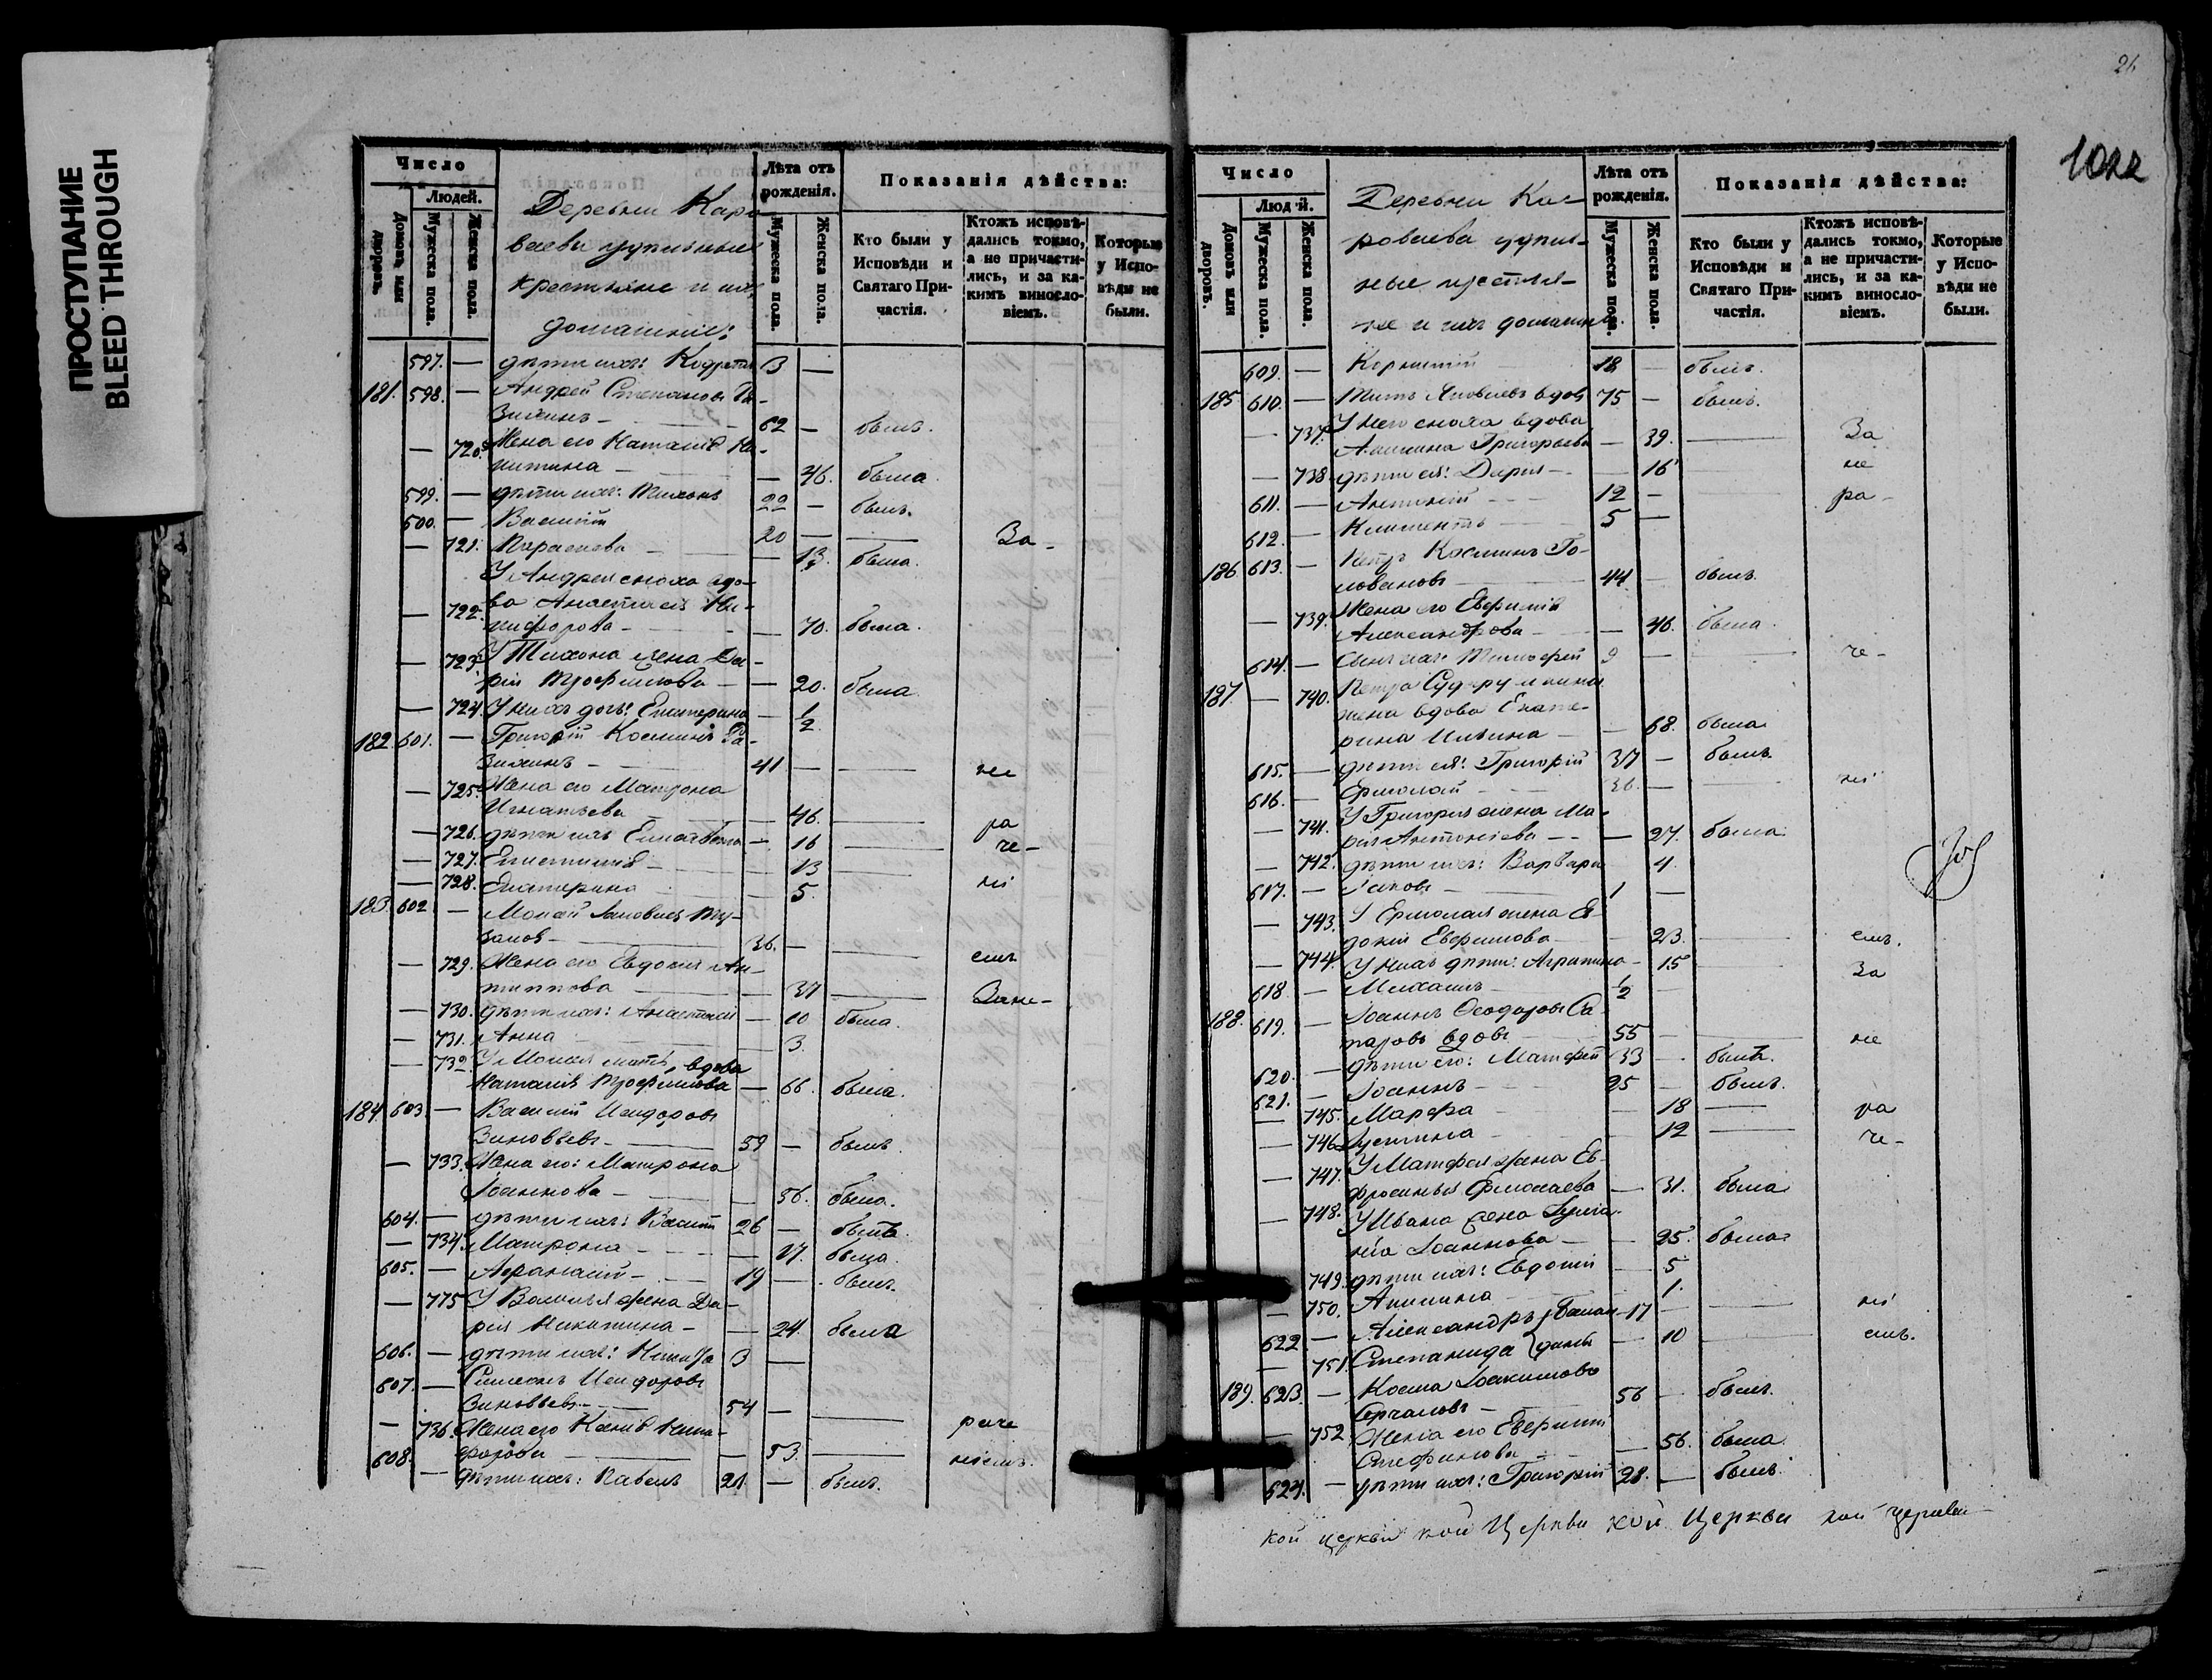 ПРОСТУПАНИЕ
BLEED THROUGH
Число
Людей.
Домовъ или дворовъ.
Мужеска пола.
Женска пола.
Деревни Кара-
ваевы удѣльные
крестьяне и ихъ
домашніе:
Лѣта отъ рожденія.
Мужеска пола.
Женска пола.
Показанія дѣйства:
Кто были у Исповѣди и Святаго Причастія.
Ктожъ исповѣдались токмо, а не причастились, и за какимъ винословіемъ.
Которые у Исповѣди не были.
597. — дѣти ихъ: 3 —
181. 598. — Андрей Степановъ
62 — былъ.
— 720. Жена его Наталія Ни-
китина — — 46. была.
599. — дѣти ихъ: Тихонъ 22 — былъ.
600. — Василій 20 — — За-
— 721. Параскева — 13. была.
У Андрея сноха вдо-
— 722. ва Анастасія Ни-
кифорова — — 70. была.
— 723. У Тихона жена Да-
рія Трофимова — — 20. была.
— 724. У нихъ дочь: Екатерина — 1/2
182. 601. — Григорій Косминъ
41 — — не
— 725. Жена его Матрона
Игнатьева — 46. — ра
— 726. дѣти ихъ Елисавета — 16 — че-
— 727. 13 —
— 728. Екатерина 5. ні
183. 602 — Мокей
36. — — емъ
— 729. Жена его Евдокія Ан-
типпова — 37 — Зане-
— 730. дѣти ихъ: Анастасія — 10 была.
— 731. Анна — 3.
— 732. У Мокея мать, вдова
Наталія Трофимова — 66. была.
184. 603. — Василій Исидоровъ
Зиновьевъ — 59 — былъ.
— 733. Жена его: Матрона
Іоаннова — — 56. была.
604. — дѣти ихъ: Василій 26 — былъ.
— 734. Матрона — — 17. была.
605. — Афанасій — 19 — былъ.
— 775 У Василья жена Да-
рія Никитина — — 24. была
606. — дѣти ихъ: 3 —
607. — Симеонъ Исидоровъ
Зиновьевъ — 54 —
— 736. Жена его Ники-
форова — — 53. — рече
608. — дѣти ихъ: Павелъ 21. — былъ. ніемъ.
21.
1022
Число
Людей.
Домовъ или дворовъ.
Мужеска пола.
Женска пола.
Деревни Ка-
роваева удѣль-
ные крестья-
не и ихъ домашніе.
Лѣта отъ рожденія.
Мужеска пола.
Женска пола.
Показанія дѣйства:
Кто были у Исповѣди и Святаго Причастія.
Ктожъ исповѣдались токмо, а не причастились, и за какимъ винословіемъ.
Которые у Исповѣди не были.
609. — Корнилій 18 — былъ.
185 610. — Титъ Яковлевъ вдов 75 — былъ.
У него сноха вдова
— 737. Акилина Григорьева — 39. — За
— 738 дѣти ея: Дарія — — 16 — не
611. — 12 — ра-
612. — Климентъ 5 —
186 613. — Петръ Косминъ Го-
ловановъ — 44 — былъ.
— 739. Жена его Евфимія
Александрова — — 46. была.
614. — Сынъ ихъ: Тимофей 9 — — че-
187. — 740. Петра
жена вдова Екате-
рина Ильина — — 68. была
615. — дѣти ея: Григорій 37 — былъ.
616. — Ермолай 36. — ні
— 741. У Григорія жена Ма-
рія Антоніева — — 27. была.
— 742. дѣти ихъ: Варвара 4.
617. — Іаковъ — 1 —
— 743. У Ермолая жена Ев-
докія Евфимова — 23. — емъ.
— 744. У нихъ дѣти: Агрипина — 15 За
618 — Михаилъ 1/2 —
188. 619. — Іоаннъ Ѳеодоровъ
вдовъ 55 — — не
620. — дѣти его: Матфей 33 — былъ.
621. — Іоаннъ — 25 — былъ.
— 745. Марфа — 18 — ра
— 746 Іустина — 12 — че-
— 747. У Матфея жена Ев-
фросинья Ермолаева — 31. была
— 748. У Ивана жена
Іоаннова — — 25. была
749. дѣти ихъ: Евдокія — 5
— 750. Акилина — 1.
622 — Александръ 17 — — ні
— 751. Степанида — 10 — емъ.
189. 623. — Косма Іоакимовъ
56 — былъ.
— 752 Жена его Евфимія
— 56. была.
624. — дѣти ихъ: Григорій 28. — былъ.
кой церкви кой Церкви кой Церкви кой церкви